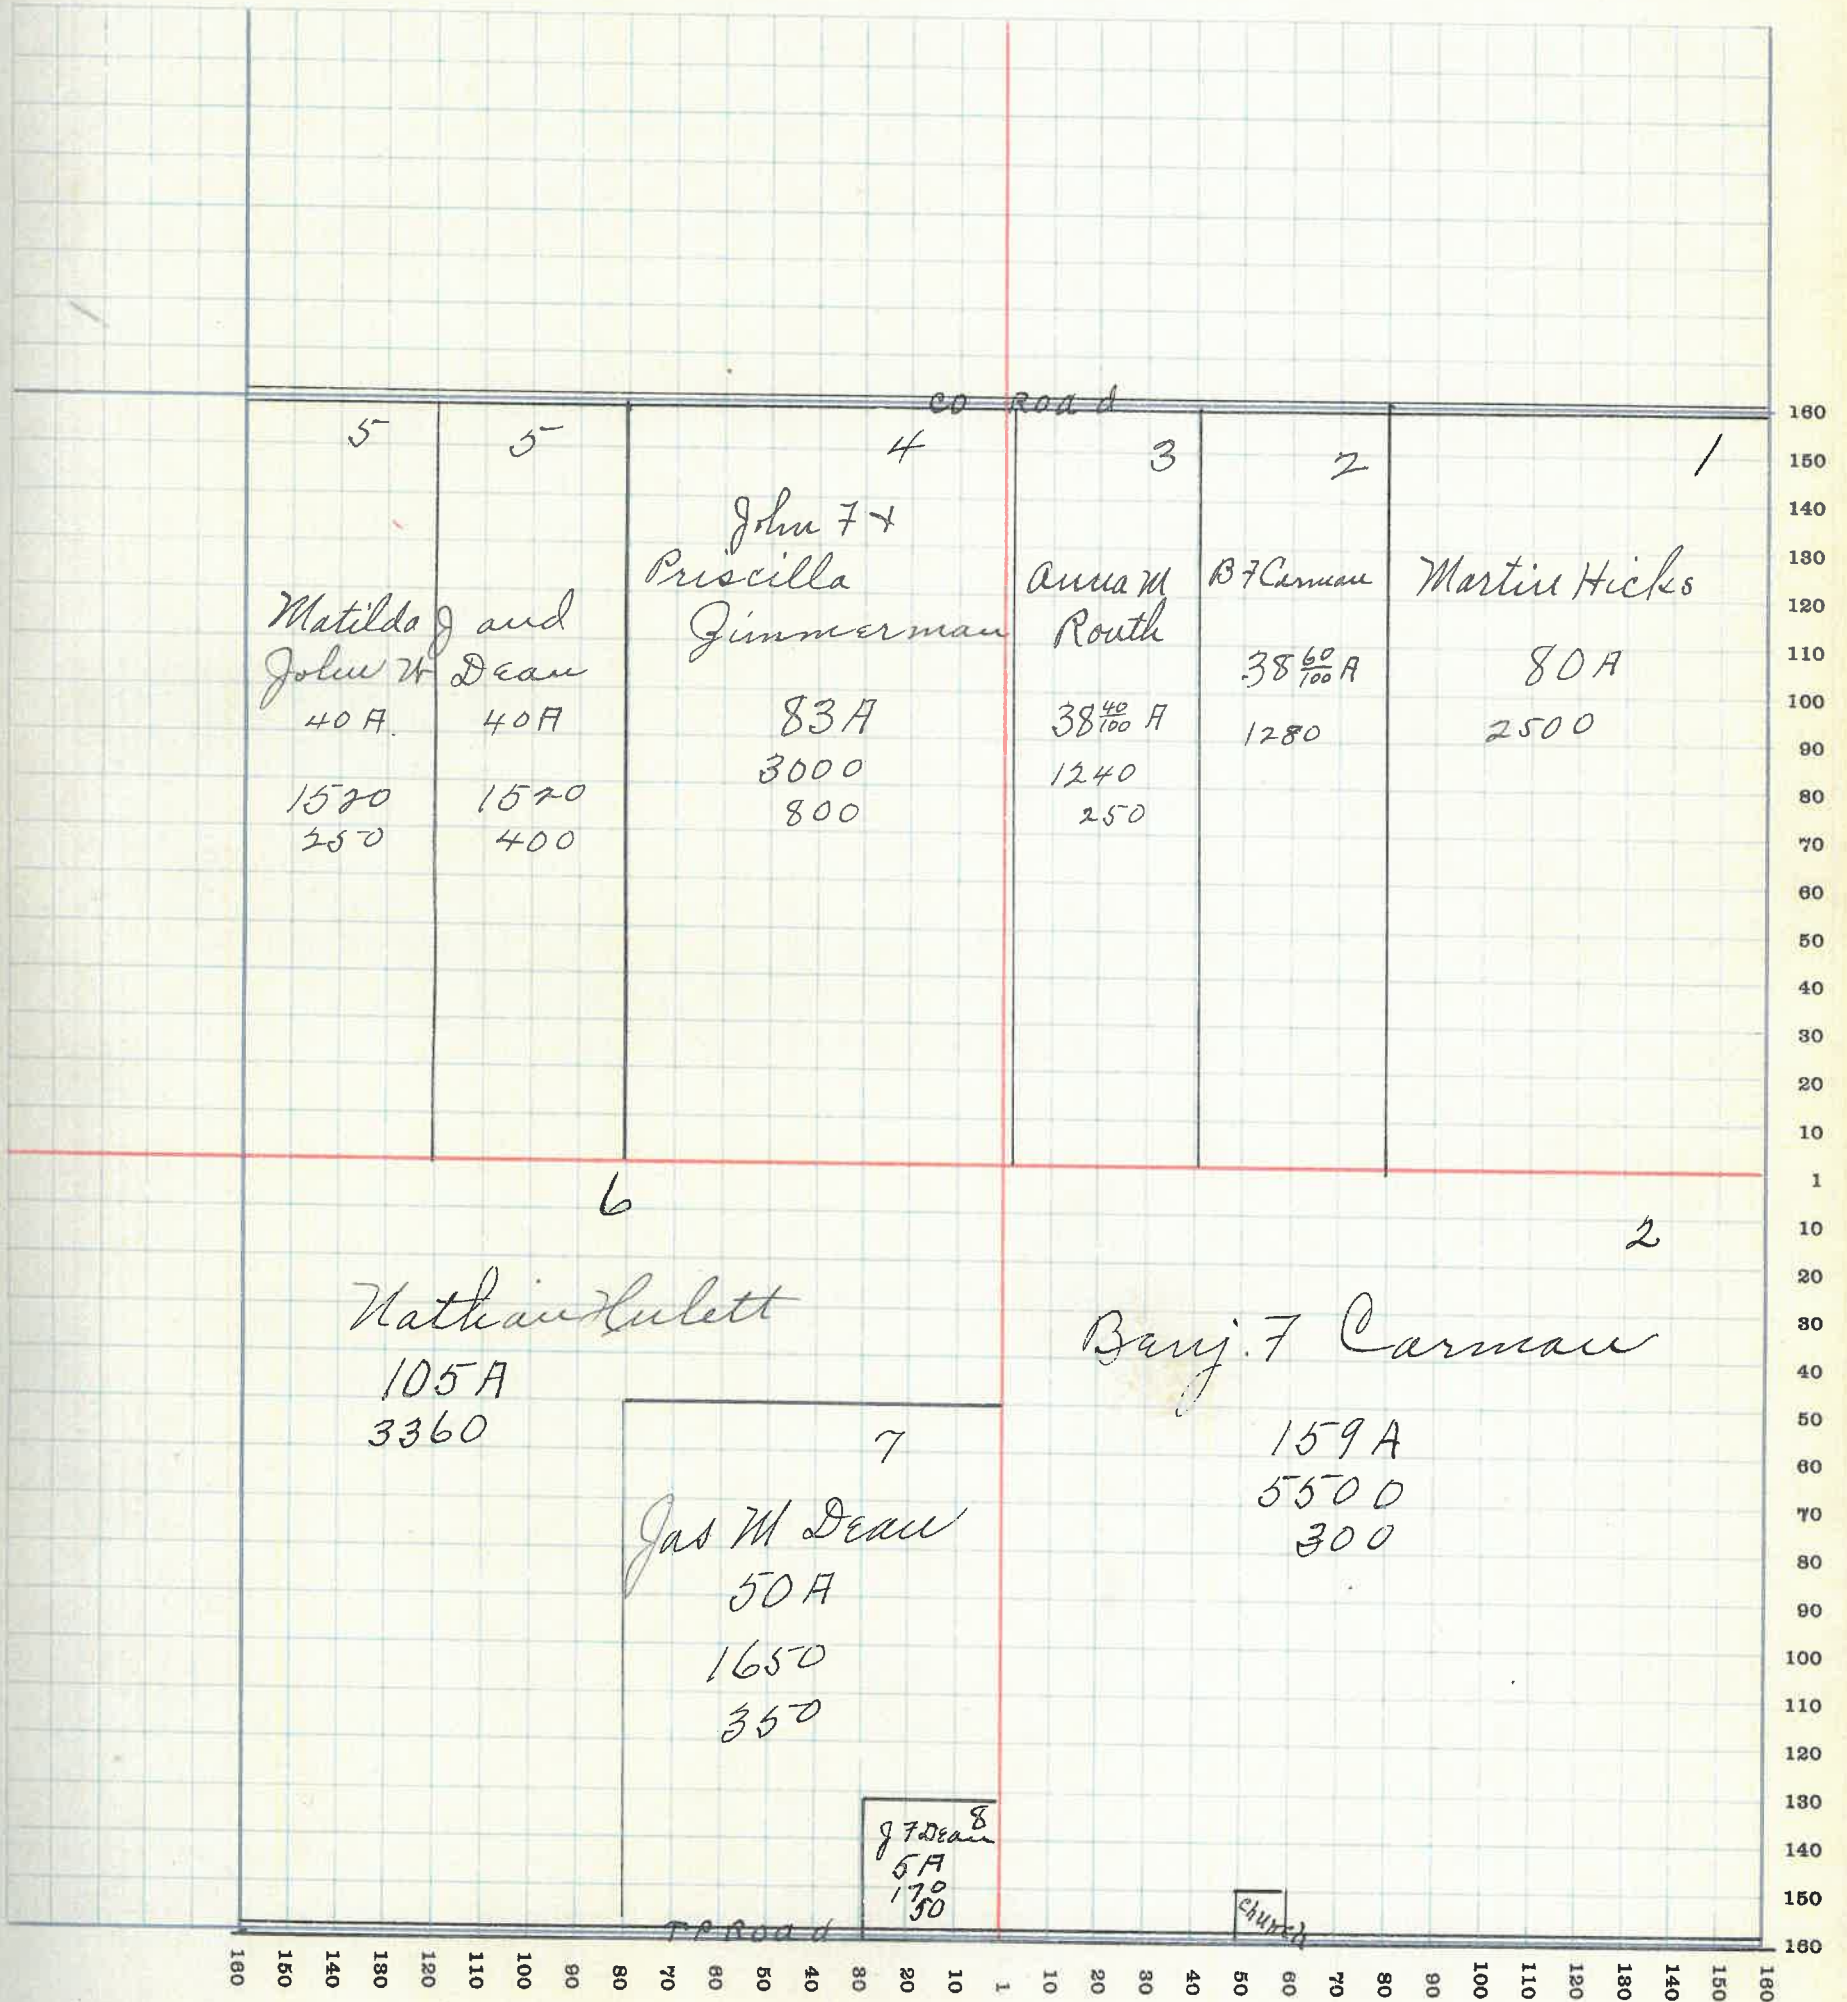 CO Road
5
5
4
3
2
1
Matilda J and
John W Dean
40 A.
40 A
1520
1520
250
400
John F &
Priscilla
Zimmerman
83 A
3000
800
Anna M
Routh
38 40/100 A
1240
250
B F Carman
38 60/100 A
1280
Martin Hicks
80 A
2500
6
Nathan Hulett
105 A
3360
2
Benj. F Carman
159 A
5500
300
7
Jas M Dean
50 A
1650
350
8
J F Dean
5 A
170
50
Church
TP Road
160
150
140
130
120
110
100
90
80
70
60
50
40
30
20
10
1
10
20
30
40
50
60
70
80
90
100
110
120
130
140
150
160
160 150 140 130 120 110 100 90 80 70 60 50 40 30 20 10 1 10 20 30 40 50 60 70 80 90 100 110 120 130 140 150 160